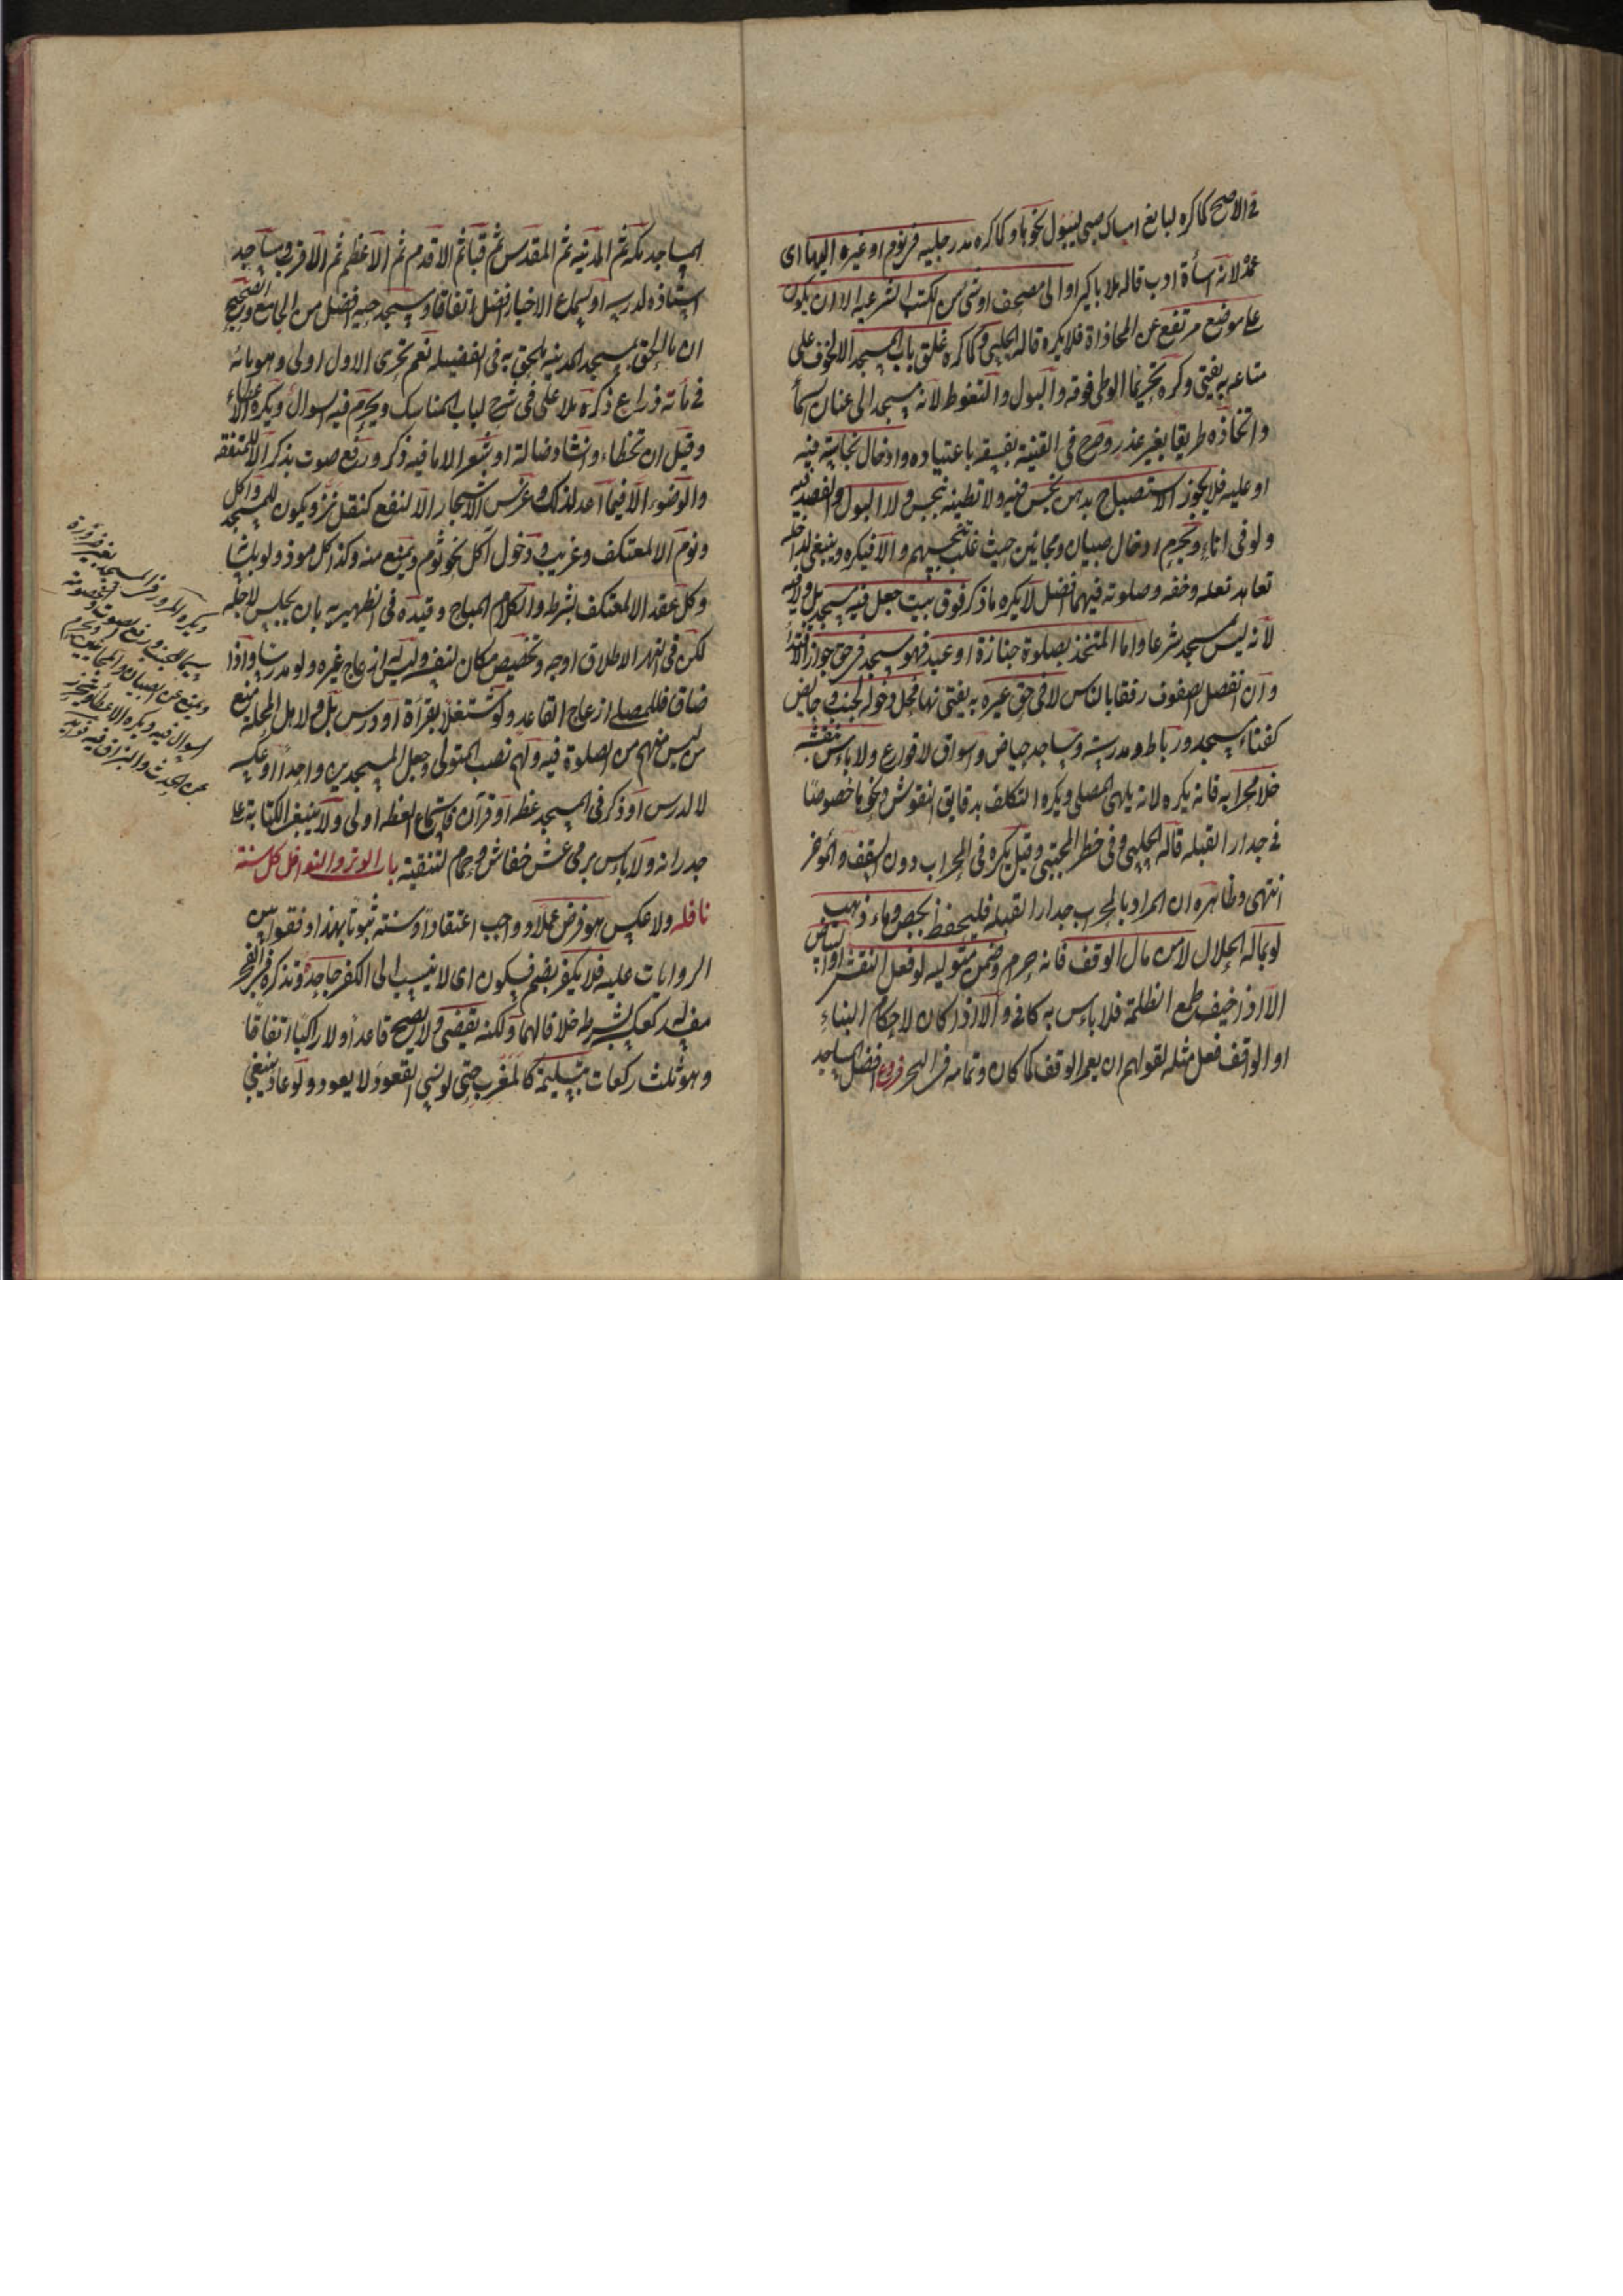 في الاصح كما كره لبالغ امساك صبي ليبول نحوها وكما كره مد رجليه في نوم او غيره اليها اى
عمدًا لانه اسأة ادب قاله ملا باكير او الى مصحف او شئ من الكتب الشرعيه الا ان يكون
على موضع مرتفع عن المحاذاة فلا يكره قاله الحلبي وكما كره غلق باب المسجد الا لخوف على
متاعه به يفتى وكره تحريما الوطئ فوقه والبول والتغوط لانه مسجد الى عنان السمأ
واتخاذه طريقا بغير عذر وصرح في القنية بفسقه باعتياده وادخال نجاسة فيه
او عليه فلا يجوز الاستصباح بدهن نجس فيه ولا تطيينه بنجس ولا البول والفصد فيه
ولو في اناء ويحرم ادخال صبيان ومجانين حيث غلب تنجيسهم والا فيكره وينبغي لداخله
تعاهد نعله وخفه وصلوته فيهما افضل لا يكره ما ذكر فوق بيت جعل فيه مسجد بل ولا فيه
لانه ليس بمسجد شرعا واما المتخذ لصلوة جنازة او عيد فهو مسجد في حق جواز الاقتدأ
وان انفصل الصفوف رفقا بالناس لا في حق غيره به يفتى نهايه فحل دخوله لجنب وحايض
كفنأ مسجد ورباط ومدرسة ومساجد حياض واسواق لا قوارع ولا باس بنقشه
خلا محرابه فانه يكره لانه يلهي المصلي ويكره التكلف بدقايق النقوش ونحوها خصوصًا
في جدار القبله قاله الحلبي وفي حظر المجتبى وقيل يكره في المحراب دون السقف والمؤخر
انتهى وظاهره ان المراد بالمحراب جدار القبله فليحفظ بجص وماء ذهب
لو بماله الحلال لا من مال الوقف فانه حرام وضمن متوليه لو فعل النقش او البياض
الا اذا خيف طمع الظلمة فلا باس به كافي والا اذا كان لاحكام البناء
او الواقف فعل مثله لقولهم ان يعمر الوقف كما كان وتمامه في البحر فروع افضل المساجد
المساجد مكة ثم المدينه ثم المقدس ثم قبا ثم الاقدم ثم الاعظم ثم الاقرب ومساجد
استاذه لدرسه او لسماع الاخبار افضل اتفاقا ومسجد حيه افضل من الجامع والصحيح
ان ما الحق بمسجد المدينه ملحق به في الفضيله نعم تحرى الاول اولى وهو مائة
في مأته ذراع ذكره ملا على في شرح لباب المناسك ويحرم فيه السوال ويكره الاعطاء
وقيل ان تخطا وانشاد ضالة او شعر الا ما فيه ذكر ورفع صوت بذكر الا للمتفقه
والوضوء الا فيما اعد لذلك وغرس الاشجار الا لنفع كتقليل نز ويكون للمسجد واكل
ونوم الا لمعتكف وغريب ودخول آكل نحو ثوم ويمنع منه وكذا كل موذ ولو بلسانه
وكل عقد الا لمعتكف بشرطه والكلام المباح وقيده في الظهيريه بان يجلس لاجله
لكن في النهر الاطلاق اوجه وتخصيص مكان لنفسه وليس له ازعاج غيره ولو مدرسا واذا
ضاق فللمصلي ازعاج القاعد ولو مشتغلا بقرأة او درس بل ولاهل المحلة منع
من ليس منهم من الصلوة فيه ولهم نصب المتولى وجعل المسجدين واحدًا او عكسه
لا لدرس او ذكر في المسجد عظة او قرآن فاستماع العظة اولى ولا ينبغي الكتابة على
جدرانه ولا باس برمي عش خفاش وحمام لتنقيته باب الوتر والنوافل كل سنة
نافله ولا عكس هو فرض عملا وواجب اعتقادا وسنته ثبوتا بهذا وفقوا بين
الروايات عليه فلا يكفر بضم فسكون اى لا ينسب الى الكفر جاحده وتذكره في الفجر
مفسد له كعكسه بشرطه خلافا لهما ولكنه يقضى ولا يصح قاعدا ولا راكبا اتفاقا
وهو ثلث ركعات بتسليمة كالمغرب حتى لو نسي القعود لا يعود ولو عاد ينبغي
ويكره المرور في المسجد بغير ضرورة
سيما للجنب ورفع الصوت والخصومة
ويمنع عن الصبيان والمجانين ويحرم
السوال فيه ويكره الاعطاء
عن الحدث والبزاق فيه